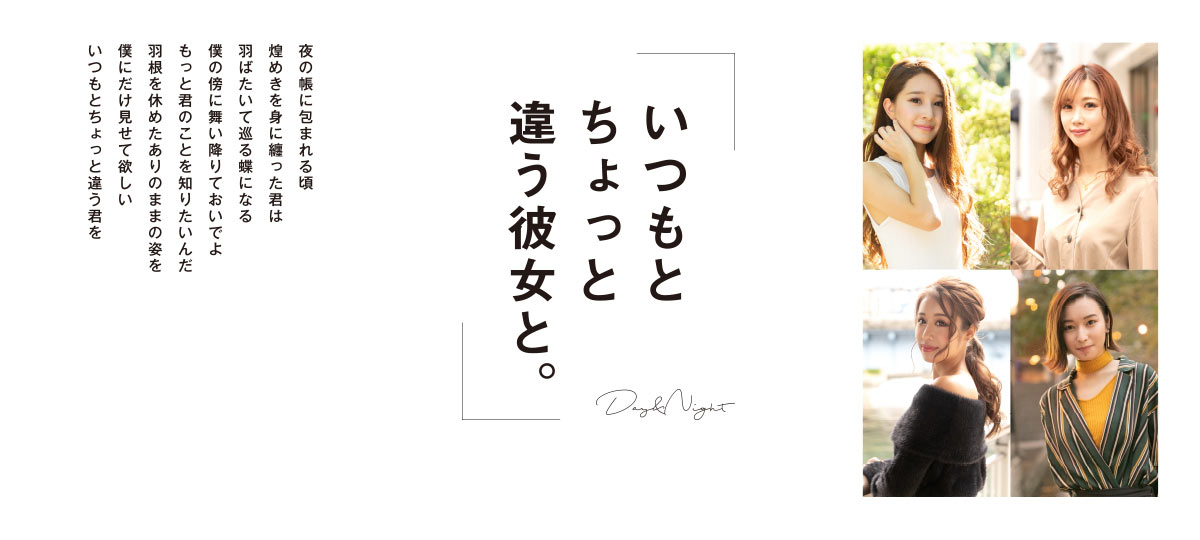 いつもと
ちょっと
違う彼女と。
Day&Night
夜の帳に包まれる頃
煌めきを身に纏った君は
羽ばたいて巡る蝶になる
僕の傍に舞い降りておいでよ
もっと君のことを知りたいんだ
羽根を休めたありのままの姿を
僕にだけ見せて欲しい
いつもとちょっと違う君を